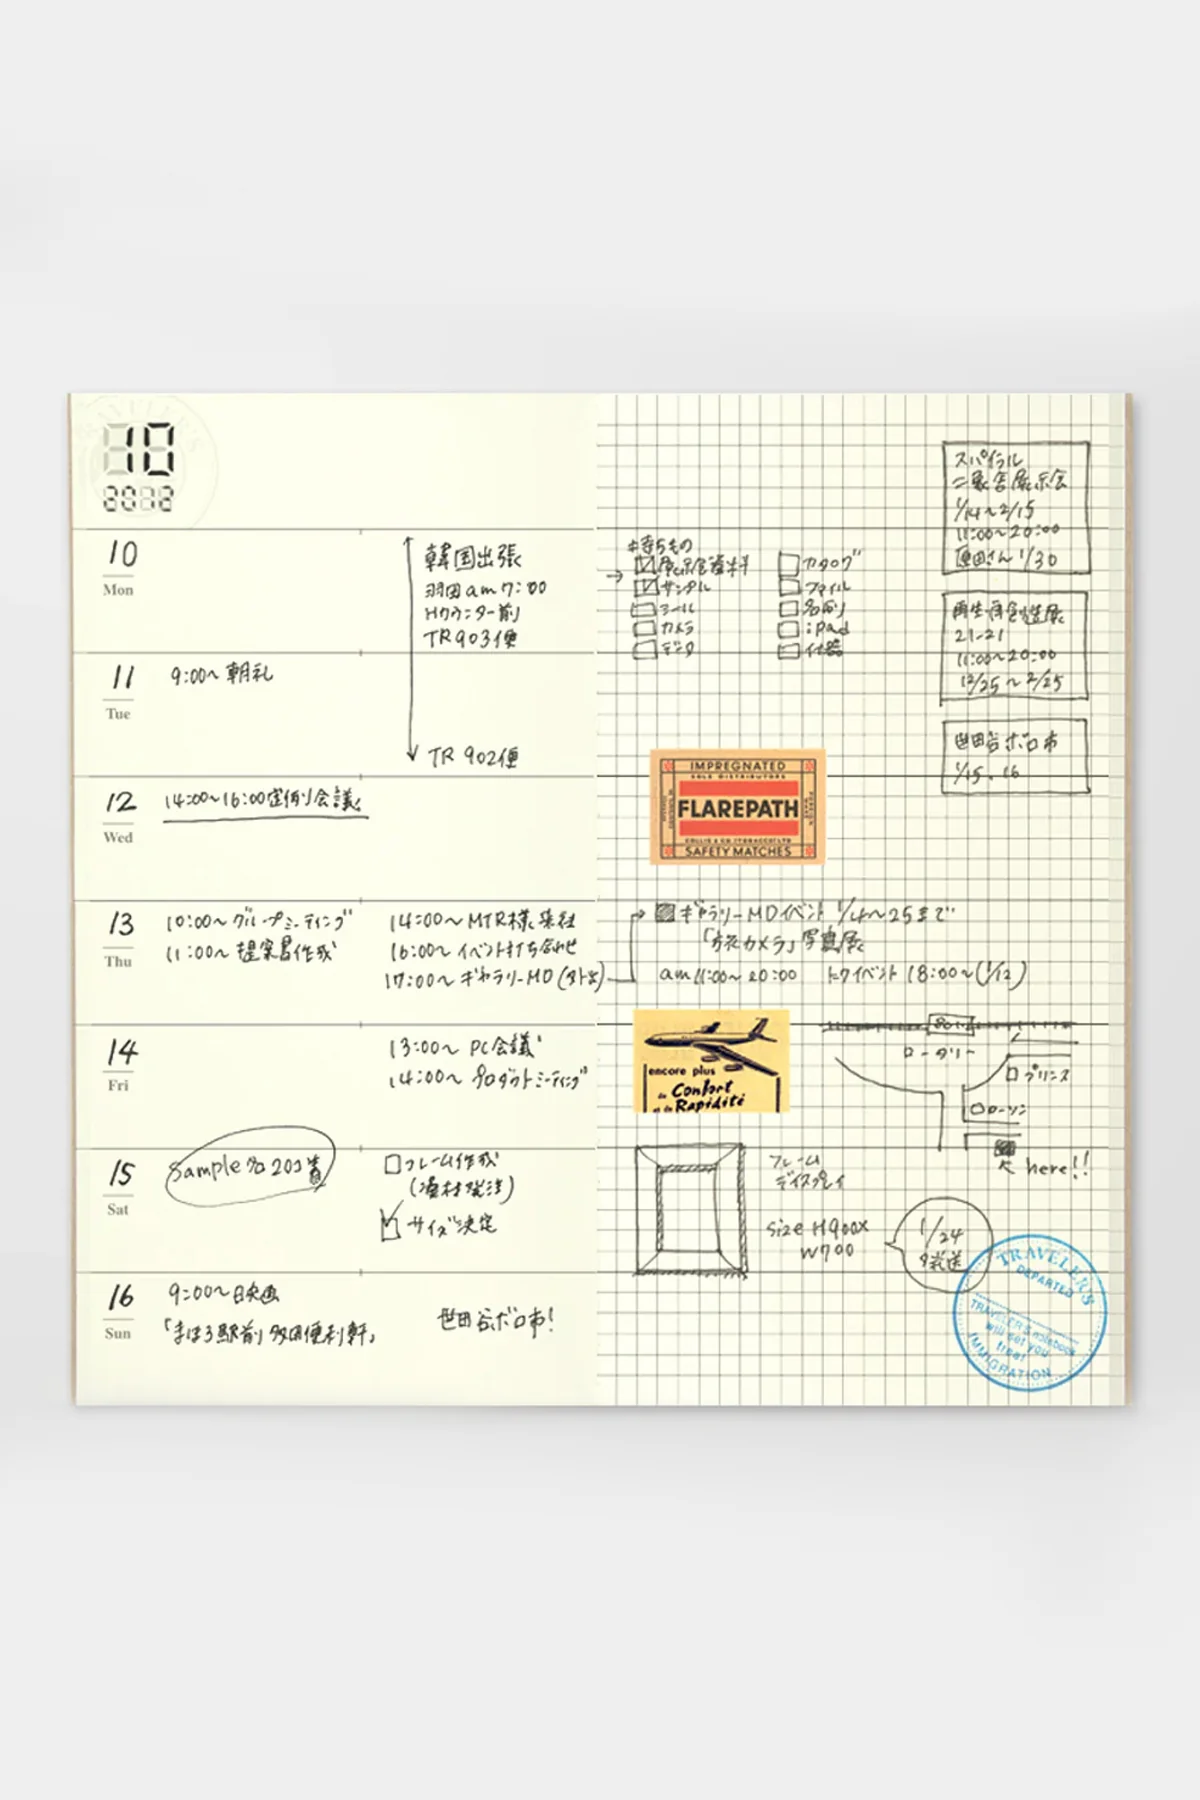 10
2012
10
Mon
韓国出張
羽田am7:00
Hカウンター前
TR903便
11
Tue
9:00〜朝礼
TR 902便
12
Wed
14:00〜16:00定例会議
13
Thu
10:00〜グループミーティング
11:00〜提案書作成
14:00〜MTR様来社
16:00〜イベント打ち合わせ
17:00〜ギャラリーMD
14
Fri
13:00〜PC会議
14:00〜プロダクトミーティング
15
Sat
Sample
フレーム作成
サイズ決定
16
Sun
9:00〜映画
「まほろ駅前多田便利軒」
世田谷ボロ市!
持ちもの
展示会資料
サンダル
シール
カメラ
データ
カタログ
ファイル
名刺
iPad
什器
スパイラル
展示会
1/14〜2/15
11:00〜20:00
1/30
再生再創造展
21-21
11:00〜20:00
12/25〜2/25
世田谷ボロ市
1/15.16
IMPREGNATED
SOLE DISTRIBUTORS
FLAREPATH
COLLIS & CO (TOBACCO) LTD
SAFETY MATCHES
ギャラリーMDイベント 1/4〜25まで
「旅カメラ」写真展
am11:00〜20:00 トークイベント 18:00〜(1/12)
encore plus
de Confort
et de Rapidité
ロータリー
プリンス
ローソン
here!!
フレーム
ディスプレイ
size H900×
W700
1/24
発送
TRAVELER'S
DEPARTED
TRAVELER'S notebook
will set you
free!
IMMIGRATION